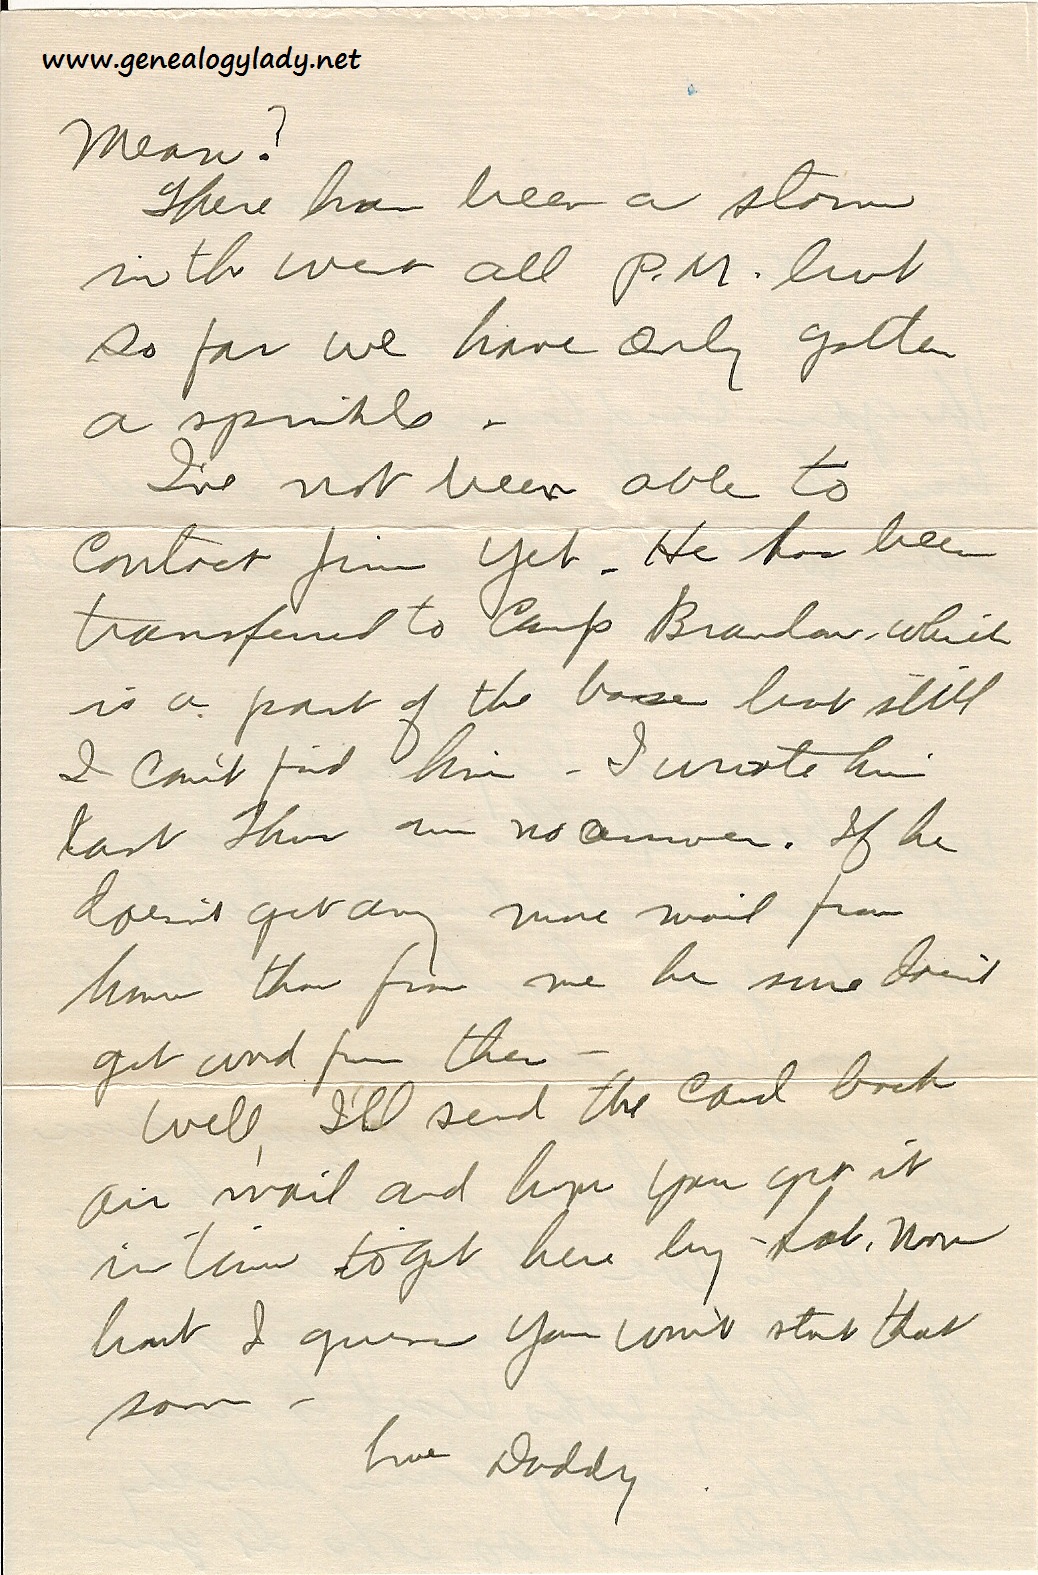 www.genealogylady.net
Mean?
There has been a storm
in the west all P.M. but
so far we have only gotten
a sprinkle.
I've not been able to
contact Jim yet - He has been
transferred to Camp which
is a part of the base but still
I can't find him - I wrote him
last Thur no answer. If he
doesn't get any more mail from
home than from me he sure doesn't
get word from them -
Well, I'll send the card back
air mail and hope you get it
in time to get here by Sat. Noon
but I guess you won't start that
soon -
Love Daddy